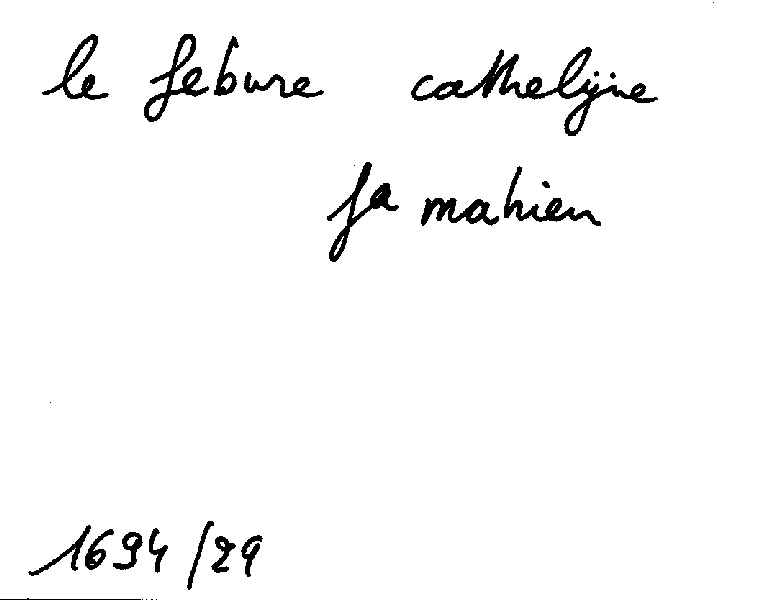 le febure cathelijne
fa mahieu
1694/29